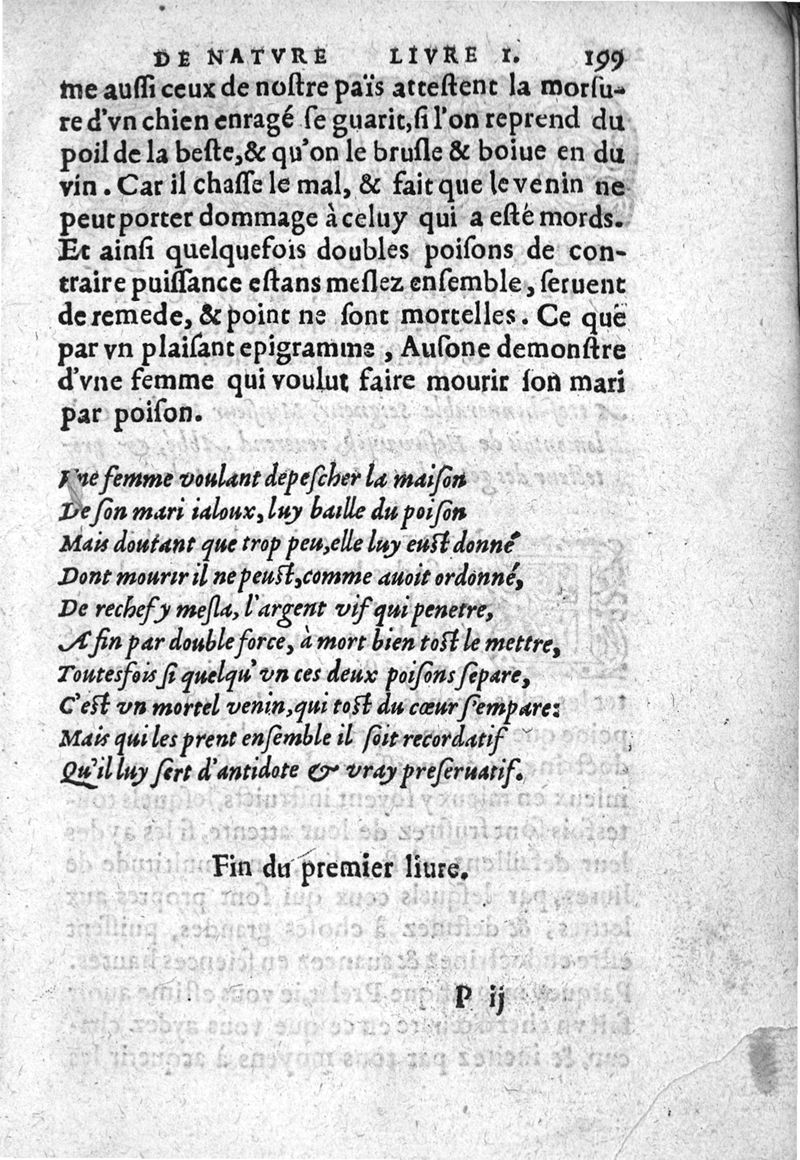 DE NATVRE LIVRE I. 199
me auſſi ceux de noſtre païs atteſtent la morſu-
re d'vn chien enragé ſe guarit, ſi l'on reprend du
poil de la beſte, & qu'on le bruſle & boiue en du
vin. Car il chaſſe le mal, & fait que le venin ne
peut porter dommage à celuy qui a eſté mords.
Et ainſi quelquefois doubles poiſons de con-
traire puiſſance eſtans meſlez enſemble, ſeruent
de remede, & point ne ſont mortelles. Ce que
par vn plaiſant epigramme, Auſone demonſtre
d'vne femme qui voulut faire mourir ſon mari
par poiſon.
Vne femme voulant depeſcher la maiſon
De ſon mari ialoux, luy baille du poiſon
Mais doutant que trop peu, elle luy euſt donné
Dont mourir il ne peuſt, comme auoit ordonné,
De rechef y meſla, l'argent vif qui penetre,
A fin par double force, à mort bien toſt le mettre,
Toutesfois ſi quelqu'vn ces deux poiſons ſepare,
C'eſt vn mortel venin, qui toſt du cœur s'empare:
Mais qui les prent enſemble il ſoit recordatif
Qu'il luy ſert d'antidote & vray preſeruatif.
Fin du premier liure.
P ij